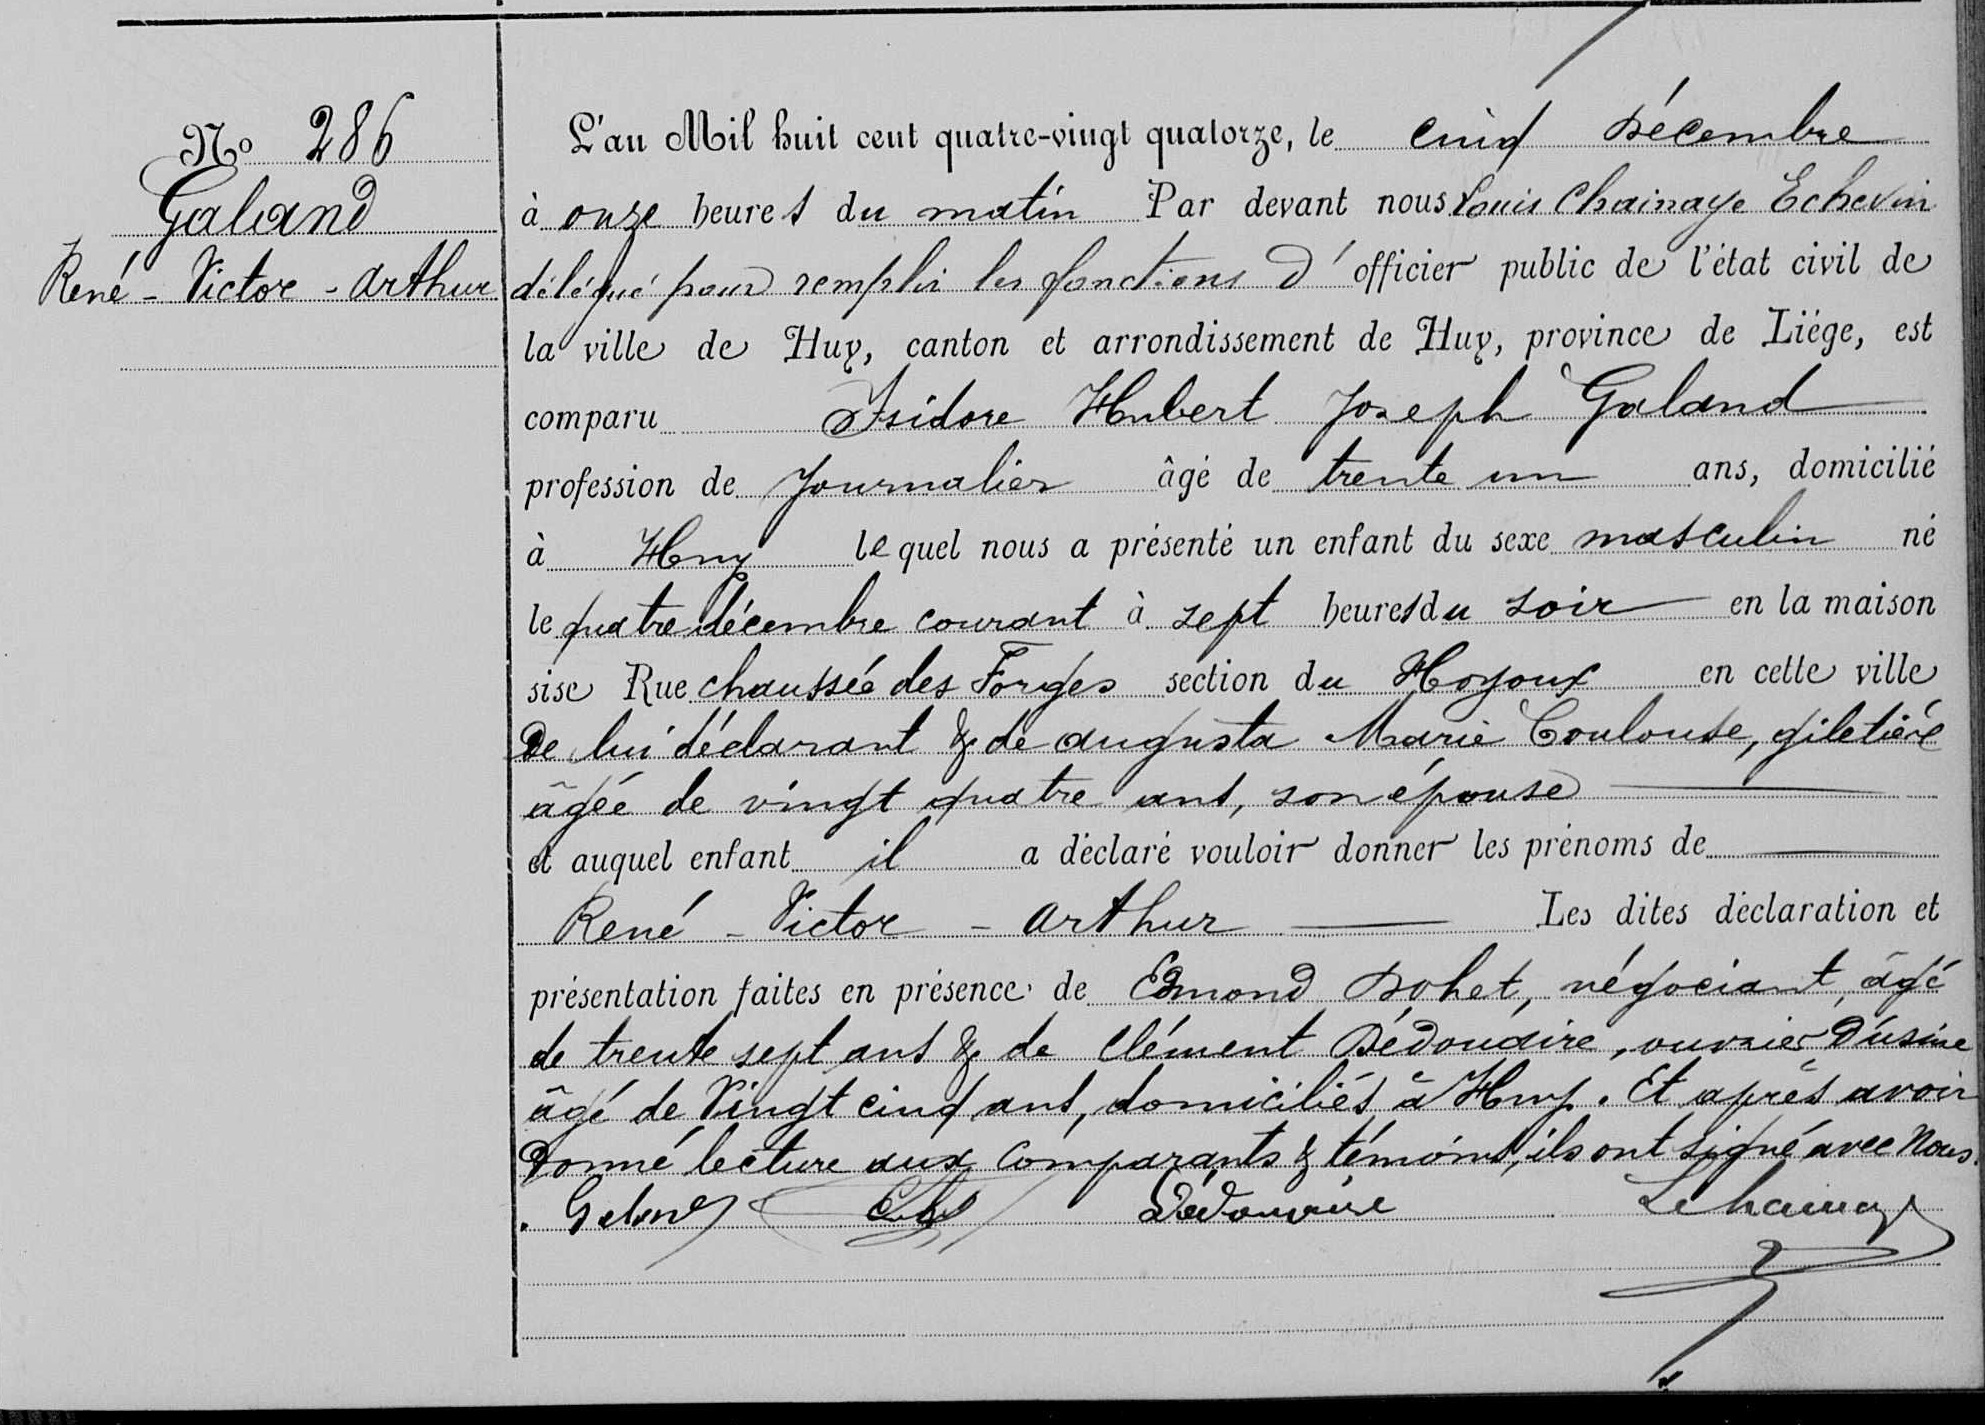 No 286
Galand
René - Victor - Arthur
L'an Mil huit cent quatre-vingt quatorze, le cinq Décembre
à onze heures du matin Par devant nous Louis Chainaye Echevin
délégué pour remplir les fonctions d'officier public de l'état civil de
la ville de Huy, canton et arrondissement de Huy, province de Liége, est
comparu Isidore Hubert Joseph Galand
profession de Journalier âgé de trente un ans, domicilié
à Huy lequel nous a présenté un enfant du sexe masculin né
le quatre décembre courant à sept heures du soir en la maison
sise Rue chaussée des Forges section du Hoyoux en cette ville
De lui déclarant & de Augusta Marie Toulouse, giletière
âgée de vingt quatre ans, son épouse
et auquel enfant il a déclaré vouloir donner les prénoms de
René - Victor - Arthur Les dites déclaration et
présentation faites en présence de Edmond Dohet, négociant, âgé
de trente sept ans & de Clément Dédouaire, ouvrier d'usine
âgé de Vingt cinq ans, domiciliés à Huy. Et après avoir
Donné lecture aux comparants & témoins, ils ont signé avec Nous.
Galand Dédouaire L Chainaye